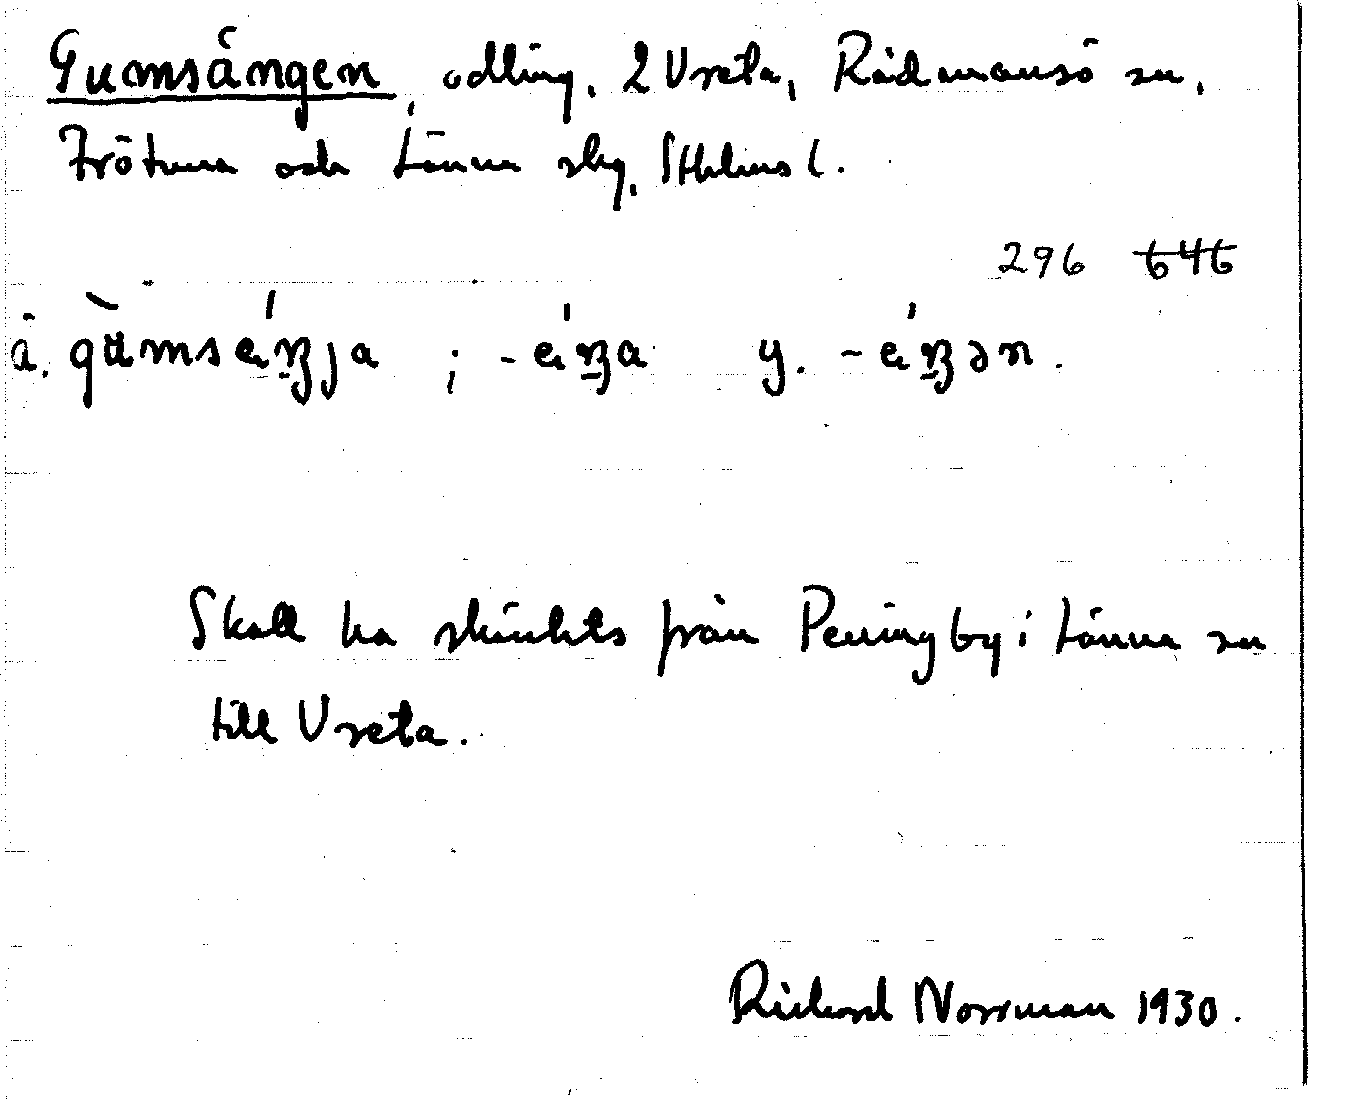 Gumsängen, odling, 2 Vreta, Rådmansö sn,
Frötuna och Länna skg, Sthlms l.
296 646
ä. gùmséŋja ; -éŋa y. -éŋən.
Skall ha skänkts från Penningby i Länna sn
till Vreta.
Rickard Norrman 1930.